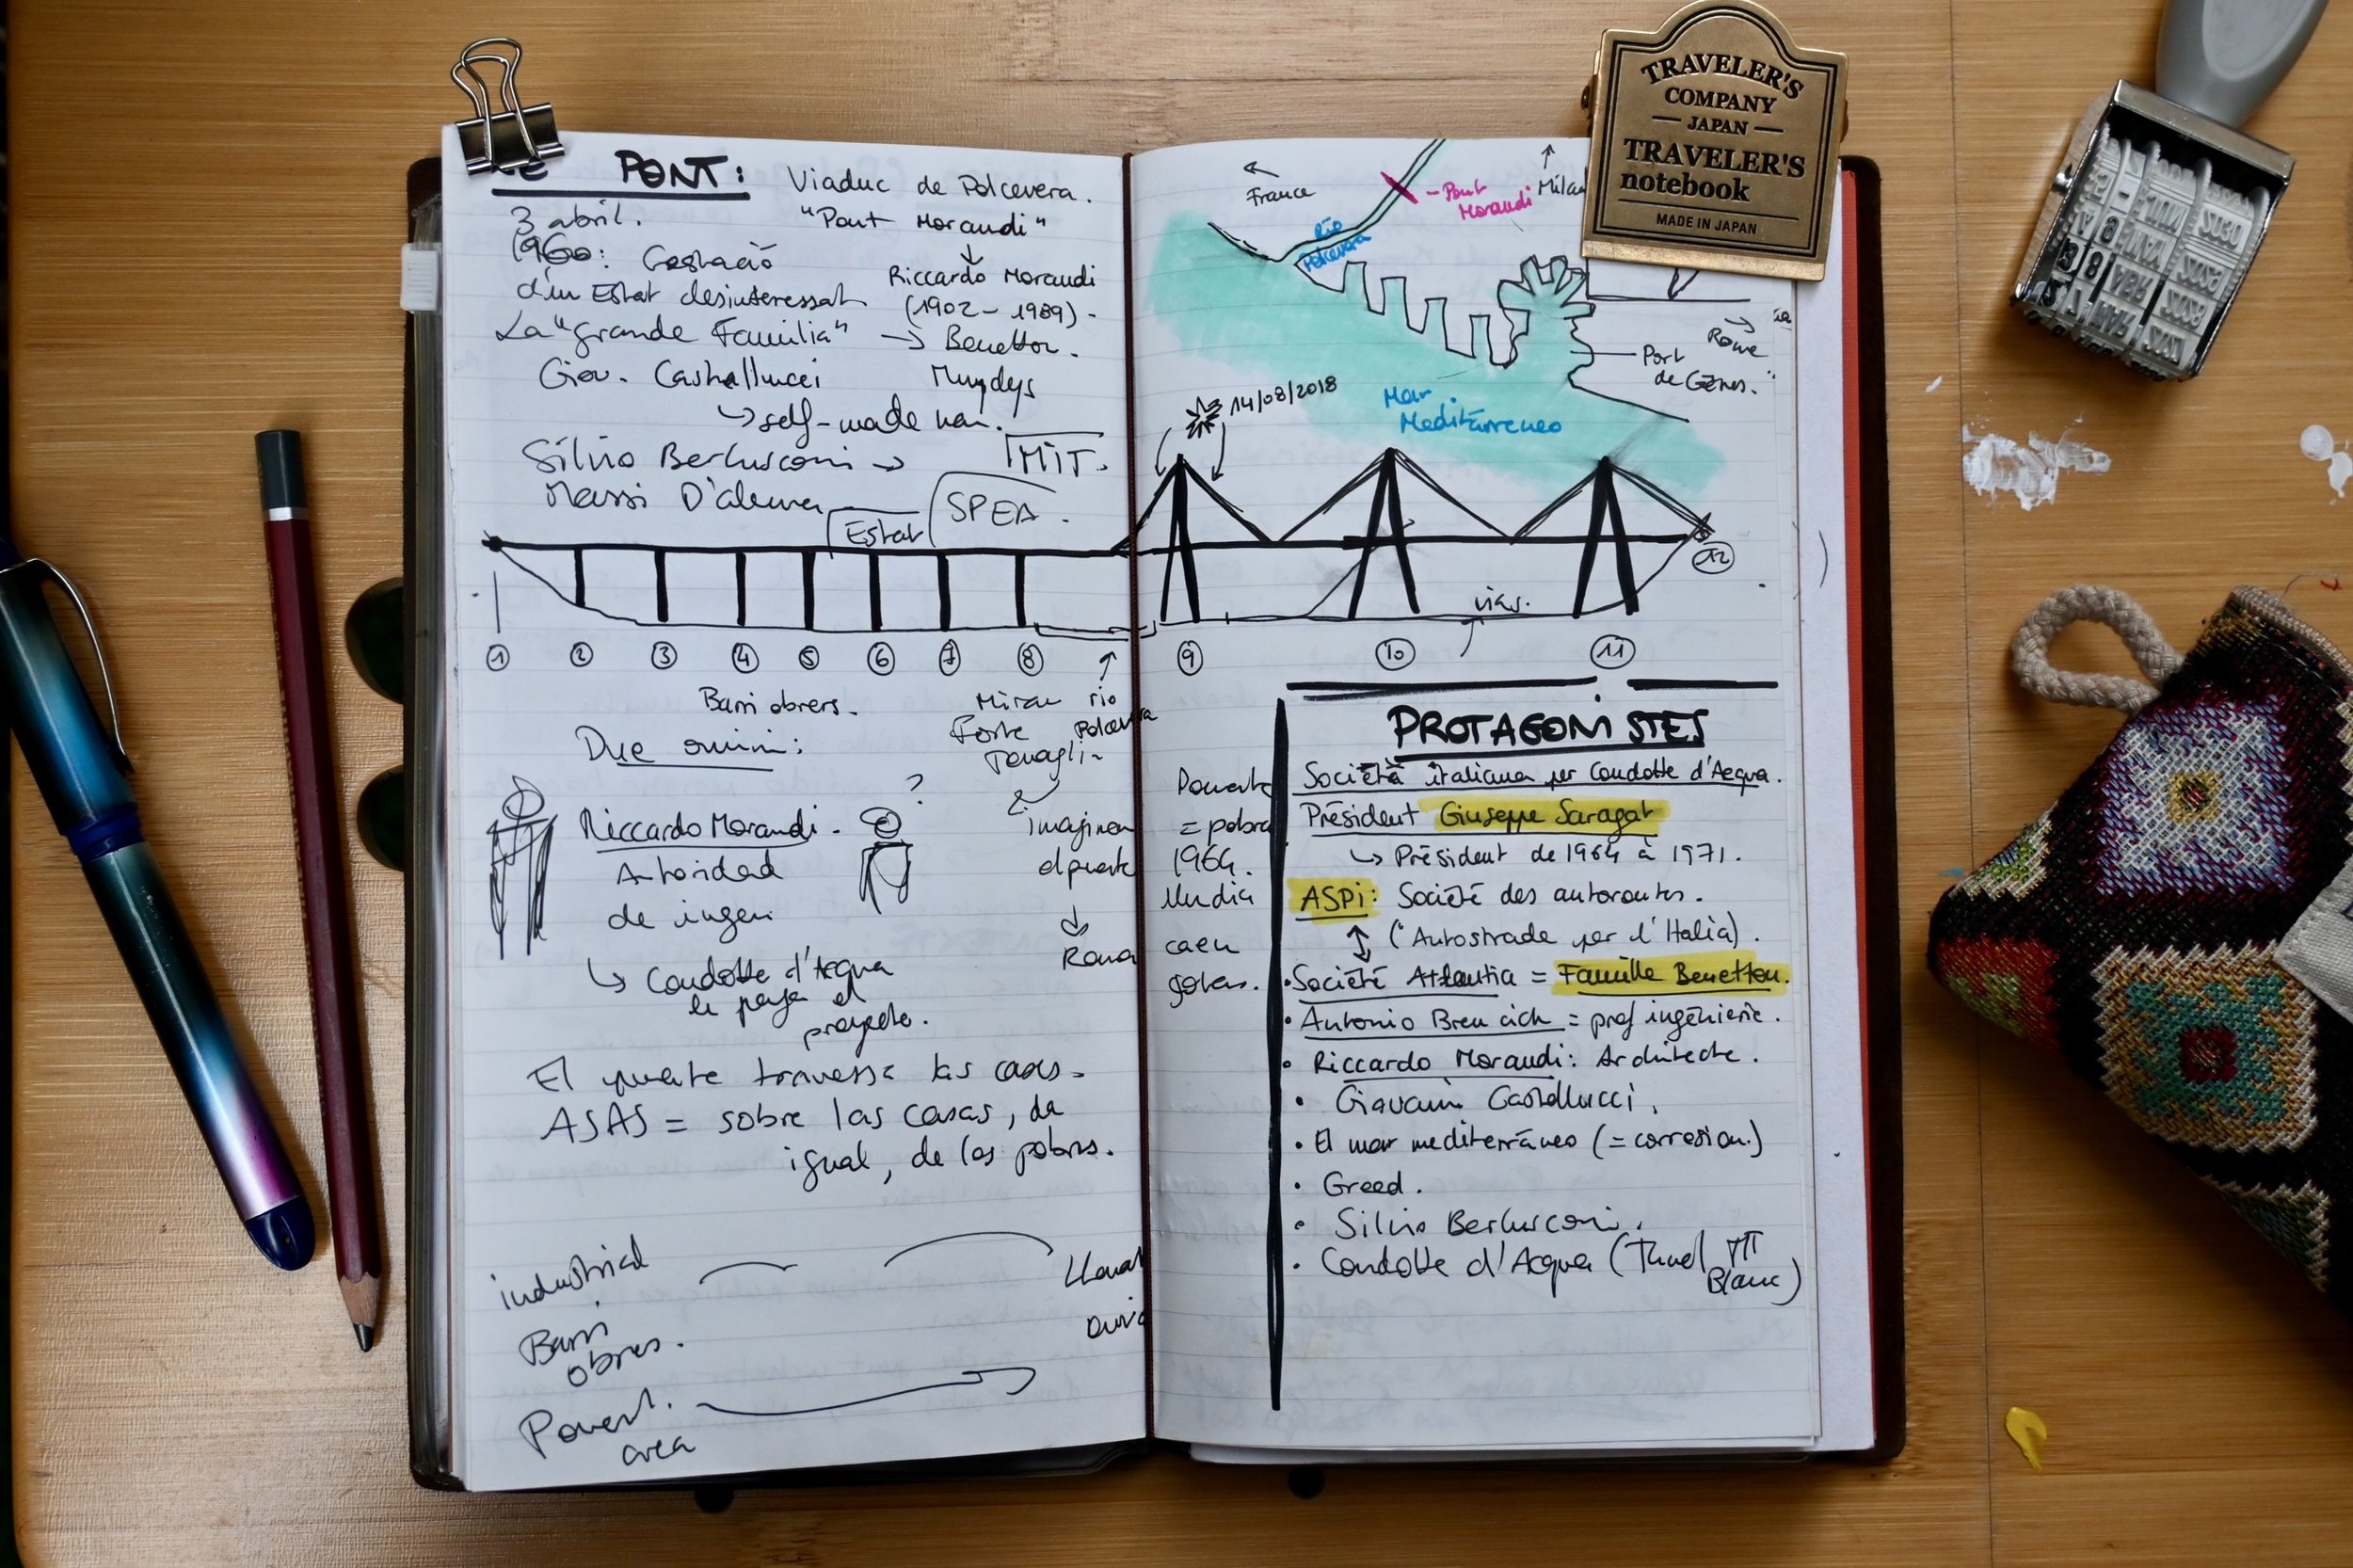 LE PONT: Viaduc de Polcevera.
"Pont Morandi"
3 abril.
1960: Gestació
d'un Estat desinteressat
Riccardo Morandi
(1902 - 1989) -
La "grande Familia" → Benetton.
Giov. Castellucci
Mundys
↳ self-made man.
Silvio Berlusconi → MIT.
Massi D'alema
Estat
SPEA.
① ② ③ ④ ⑤ ⑥ ⑦ ⑧
Barri obrers.
rio
Polcevera
Due omini:
?
Riccardo Morandi.
Autoridad
de ingen
↳ Condotte d'Acqua
le paga el
proyecto.
imaginen
el puente
↓
Roma
El puente travessa las casas.
ASAS = sobre las casas, da
igual, de los pobres.
industrial
Barri
obrers.
area
← France
- Pont
Morandi
Milan
Rio
Polcevera
Rome
Port
de Gênes.
Mar
Mediterraneo
14/08/2018
⑨ ⑩ ⑪ ⑫
vías.
= pobra
1964.
lludia
caen
gotas.
PROTAGONISTES
Società italiana per Condotte d'Acqua.
Président Giuseppe Saragat
↳ Président de 1964 à 1971.
ASPi: Société des autoroutes.
↕ ("Autostrade per l'Italia).
• Société Atlantia = Famille Benetton.
• Antonio Brencich = prof ingénierie.
• Riccardo Morandi: Architecte.
• Giovanni Castellucci.
• El mar mediterráneo (= corrosion.)
• Greed.
• Silvio Berlusconi.
• Condotte d'Acqua (Tunel MT
Blanc)
TRAVELER'S
COMPANY
— JAPAN —
TRAVELER'S
notebook
MADE IN JAPAN